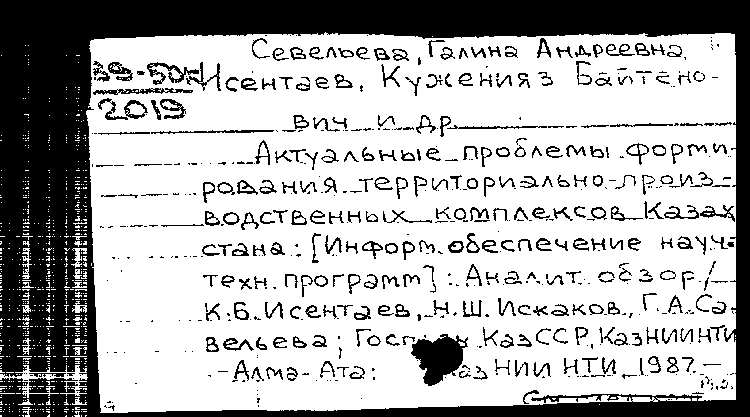 Севельева, Галина Андреевна
39-50
2019
Исентаев, Кужения з Байтено-
вич и др
Актуальные проблемы форми-
рования территориально-произ-
водственных комплексов Казах
стана : [Информ. обеспечение науч-
техн. программ] : Аналит. обзор /
К.Б. Исентаев, Н.Ш. Искаков, Г.А. Са-
вельева; КазССР, КазНИИНТИ
- Алма-Ата : НИИ НТИ, 1987. -